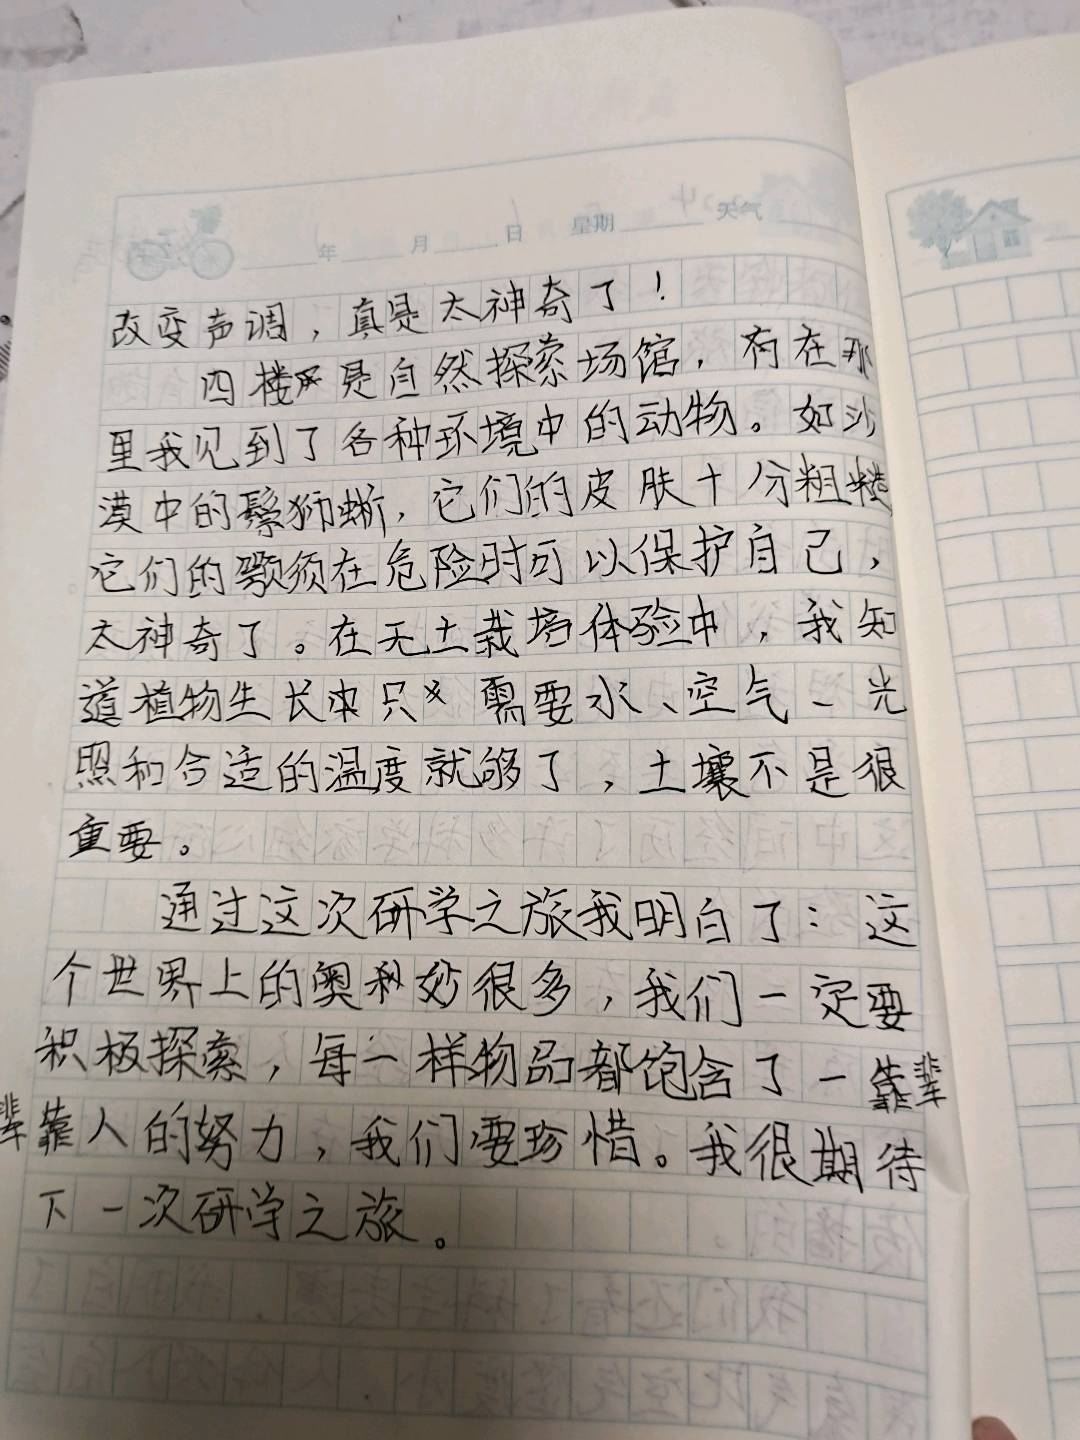 年 月 日 星期 天气
改变声调，真是太神奇了！
四楼是自然探索场馆，有在那
里我见到了各种环境中的动物。如沙
漠中的鬃狮蜥，它们的皮肤十分粗糙
它们的颚须在危险时可以保护自己，
太神奇了。在无土栽培体验中，我知
道植物生长中只需要水、空气、光
照和合适的温度就够了，土壤不是很
重要。
通过这次研学之旅我明白了：这
个世界上的奥秘妙很多，我们一定要
积极探索，每一样物品都饱含了一靠辈
辈靠人的努力，我们要珍惜。我很期待
下一次研学之旅。